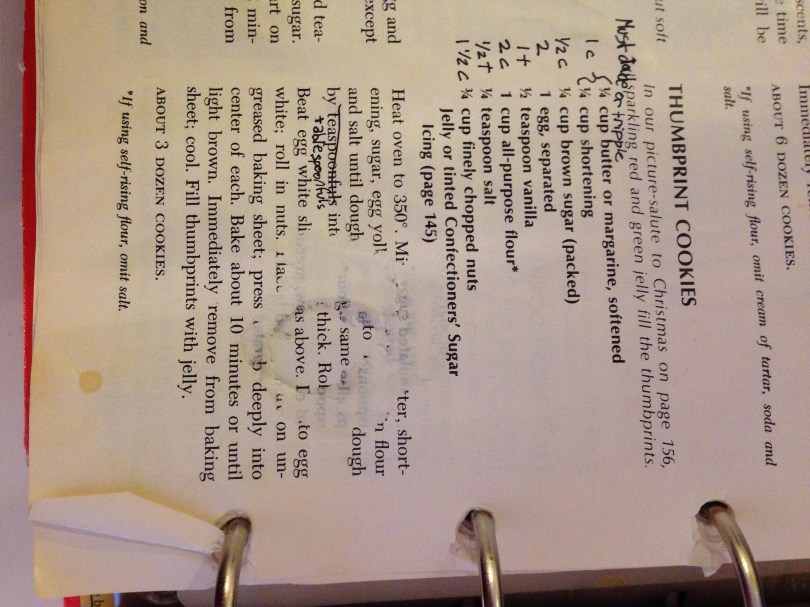 Immediately
ABOUT 6 DOZEN COOKIES.
*If using self-rising flour, omit cream of tartar, soda and
salt.
THUMBPRINT COOKIES
In our picture-salute to Christmas on page 156,
sparkling red and green jelly fill the thumbprints.
Must double or tripple
1 c { ¼ cup butter or margarine, softened
¼ cup shortening
½ c ¼ cup brown sugar (packed)
2 1 egg, separated
1 t ½ teaspoon vanilla
2 c 1 cup all-purpose flour*
½ t ¼ teaspoon salt
1 ½ c ¾ cup finely chopped nuts
Jelly or tinted Confectioners' Sugar
Icing (page 145)
Heat oven to 350°. ter, short-
ening, sugar, egg flour
and salt until dough to dough
by teaspoonfuls same
tablespoonfuls
thick.
Beat egg white as above. to egg
white; roll in nuts. on un-
greased baking sheet; press deeply into
center of each. Bake about 10 minutes or until
light brown. Immediately remove from baking
sheet; cool. Fill thumbprints with jelly.
ABOUT 3 DOZEN COOKIES.
*If using self-rising flour, omit salt.
scents,
time
ill be
ut soft
g and
except
d tea-
sugar.
rt on
min-
from
on and